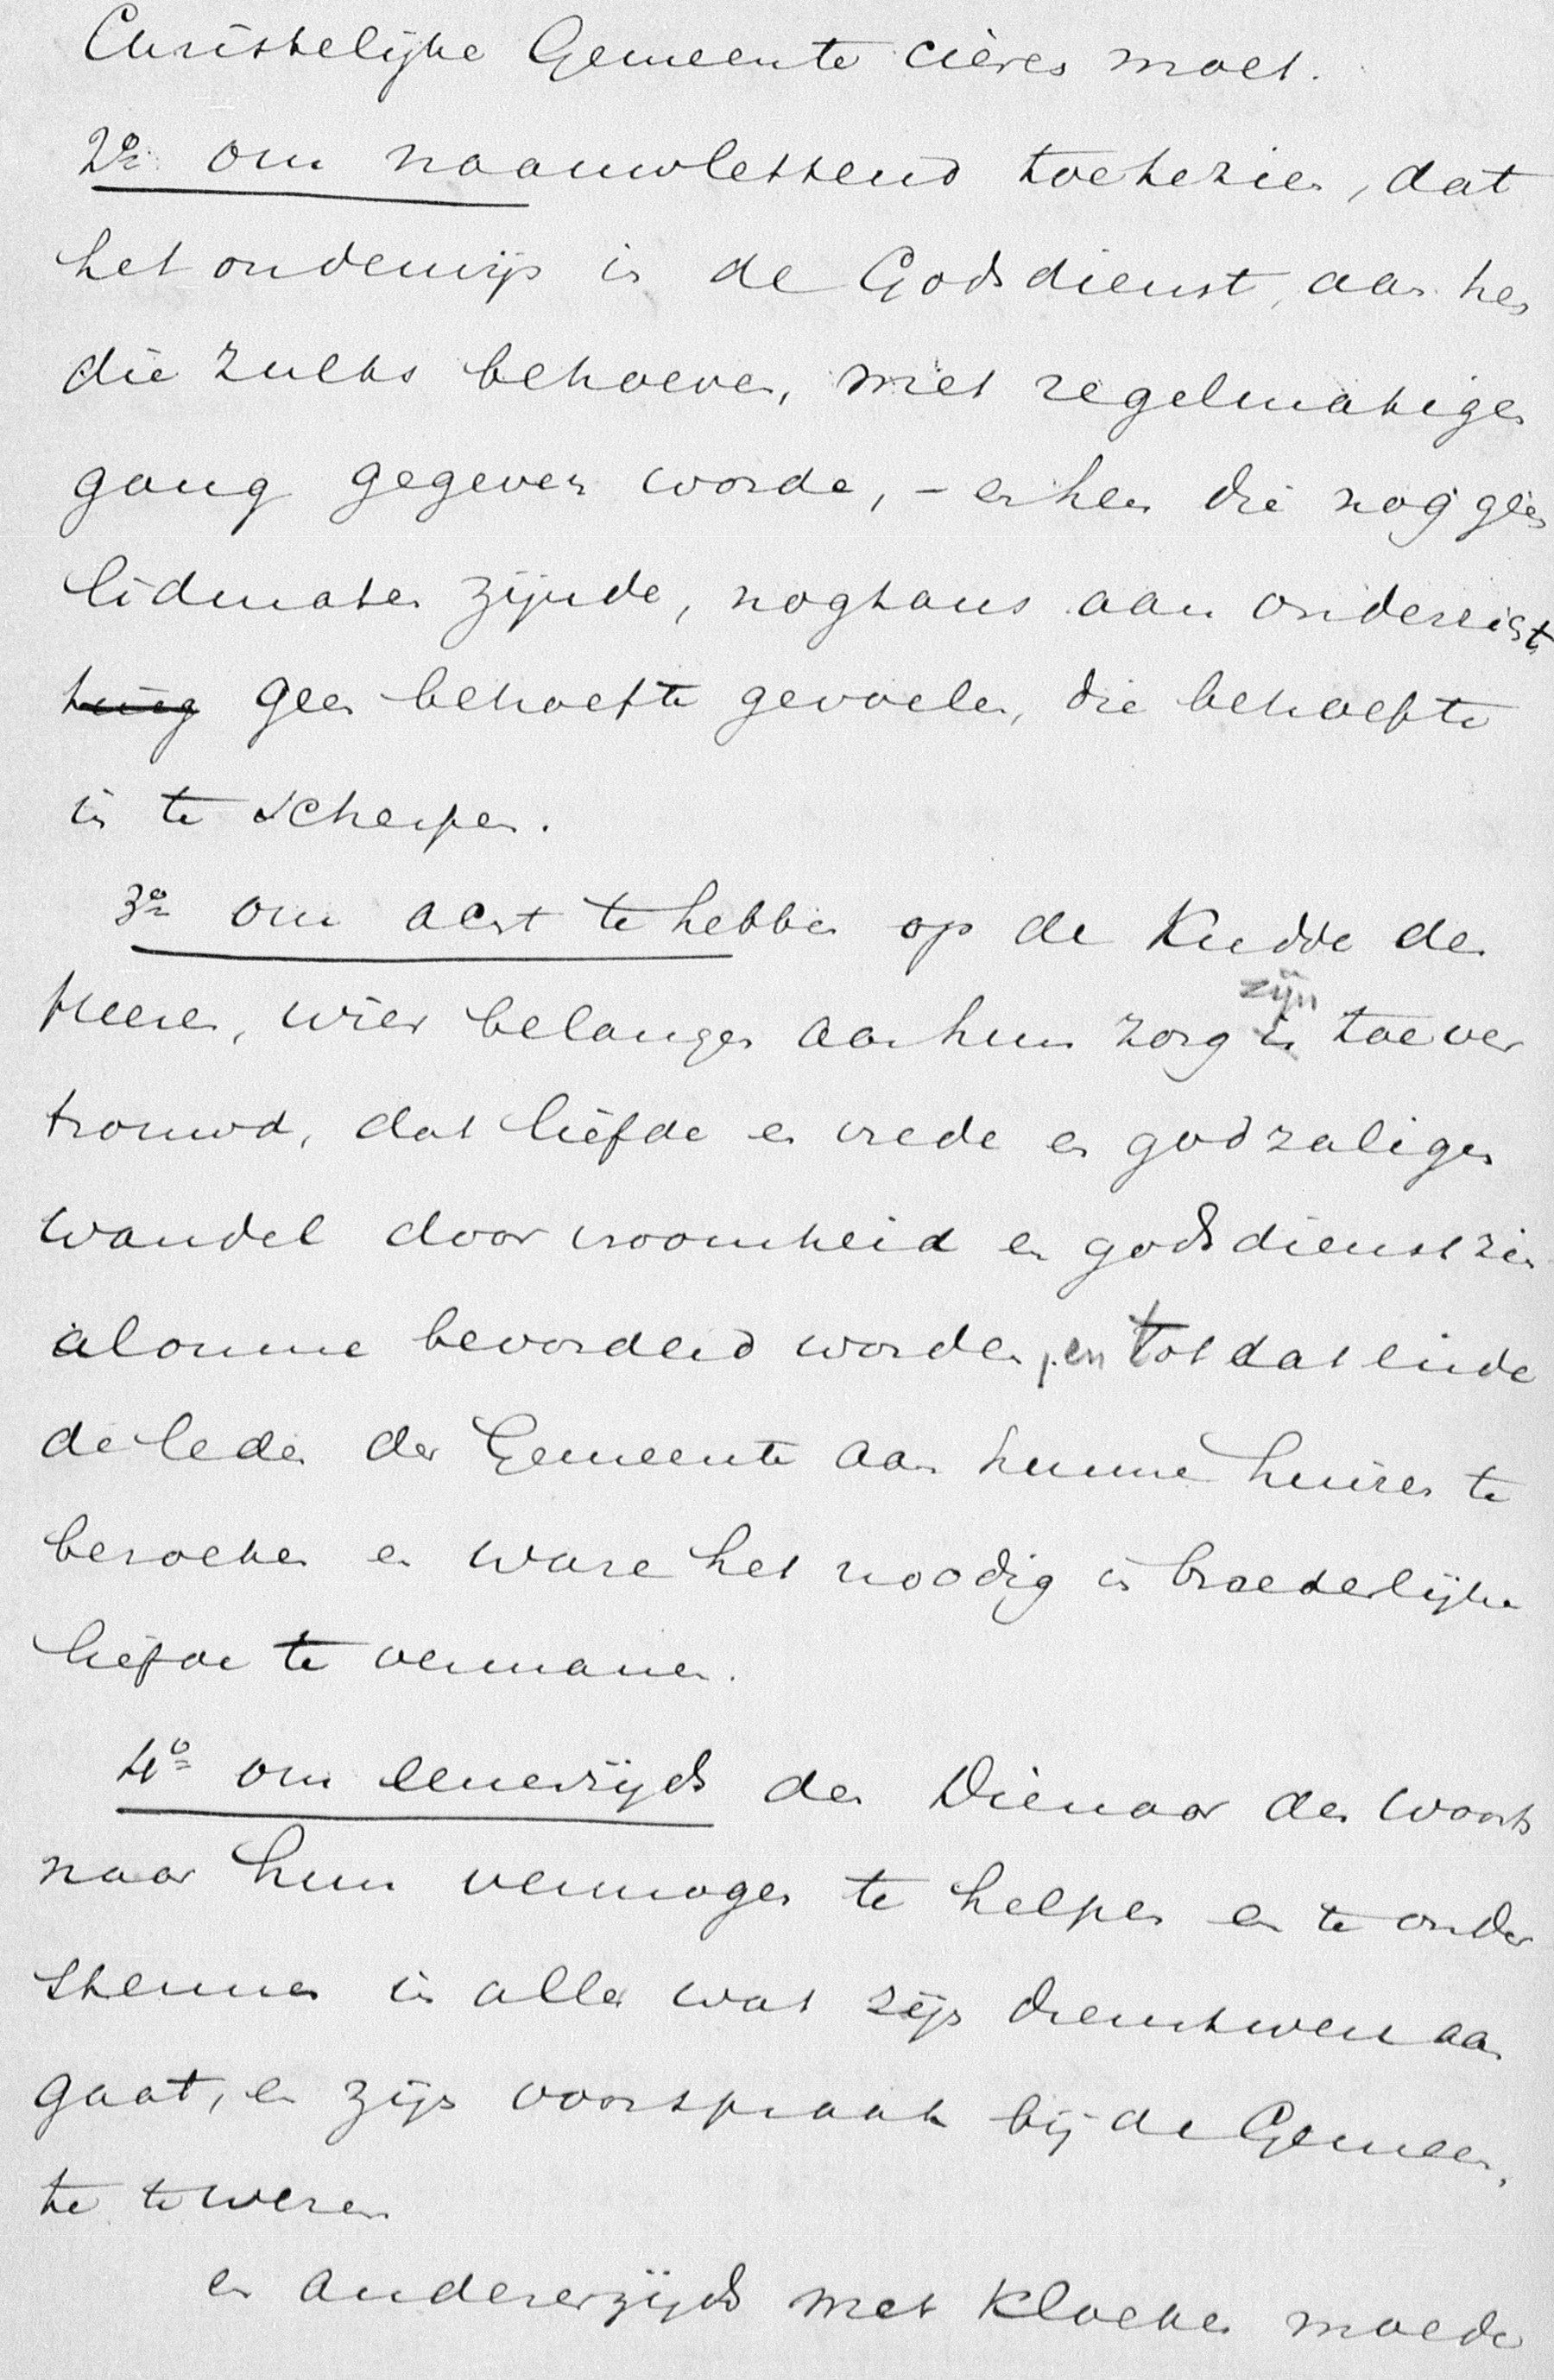 Christelijke Gemeente cieren moet.
2º om naauwlettend toetezien, dat
het onderwijs in de Godsdienst, aan hen
die zulks behoeven, met regelmatigen
gang gegeven worde, - en hen die nog geen
lidmaten zijnde, nogtans aan onderricht
ting geen behoefte gevoelen, die behoefte
in te scherpen.
3º om acht te hebben op de Kudde des
Heeren, wier belangen aan hun zorg is zijn toever
trouwd, dat liefde en vrede en godzaligen
wandel door vroomheid en godsdienstzin
alomme bevorderd worden, en tot dat einde
de leden der Gemeente aan hunne huizen te
bezoeken en ware het noodig in broederlijke
liefde te vermanen.
4º om eenerzijds den Dienaar des Woords
naar hun vermogen te helpen en te onder
steunen in alles wat zijn dienstwerk aan
gaat, en zijn voorspraak bij de Gemeen,
te te wezen
en andererzijds met kloeken moede